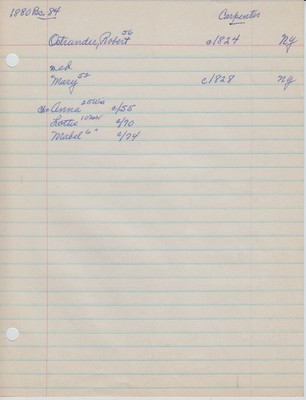 1880 Pg. 84 Carpenter
Ostrander, Robert 56 c/1824 NY
md
Mary 52 c1828 NY
ch: Anna 25 c/55
Lottie 10 c/70
Mabel 6 c/74